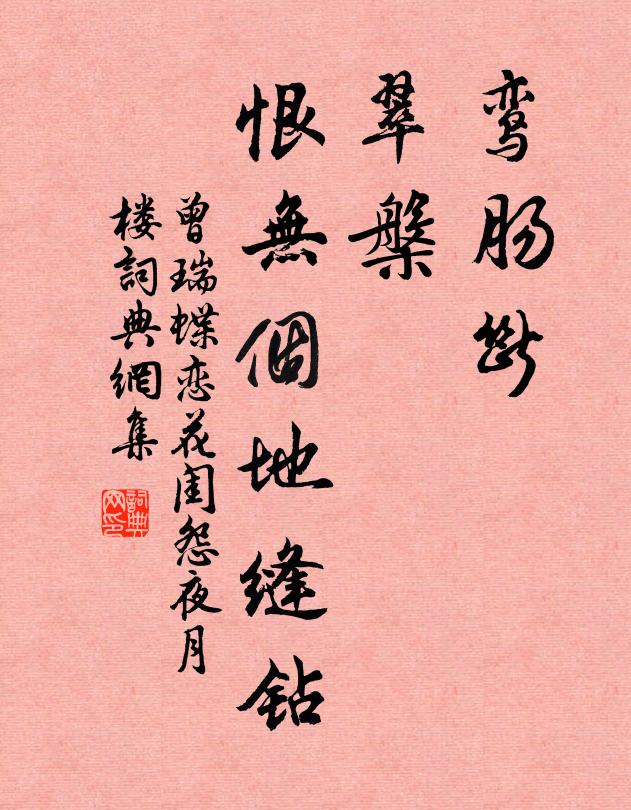 鸾肠断
翠槃
恨無個地缝钻
曾瑞蝶恋花闺怨夜月
楼詞典網集
詞典网印